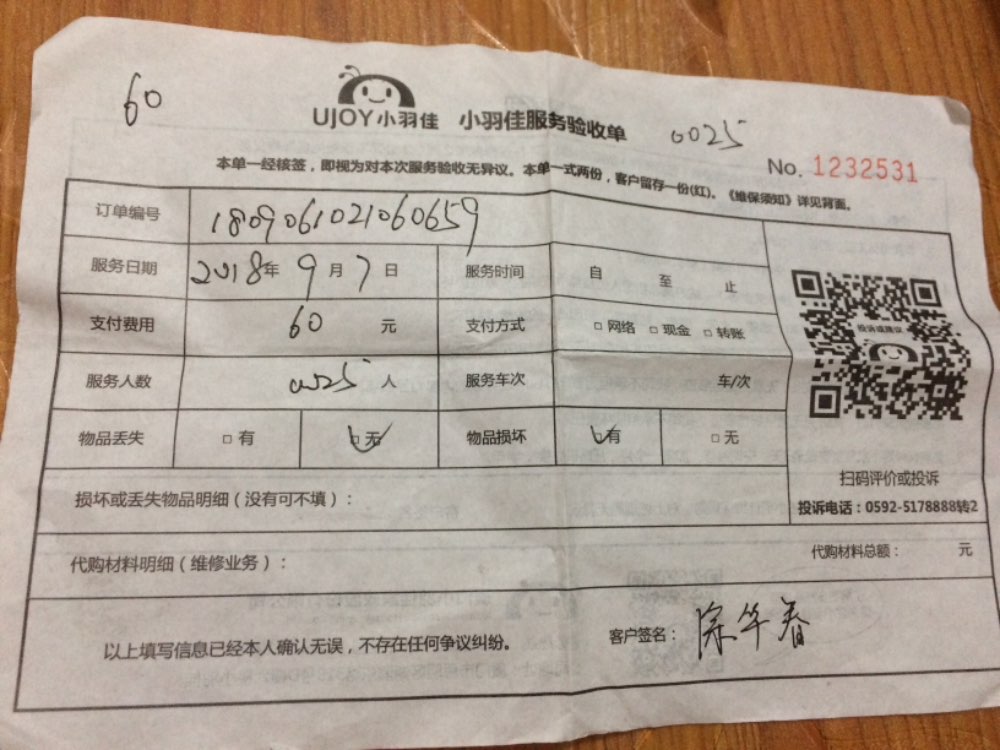 60
UJOY小羽佳 小羽佳服务验收单 0025
No. 1232531
本单一经核签，即视为对本次服务验收无异议。本单一式两份，客户留存一份(红)。《维保须知》详见背面。
订单编号 1809061021060659
服务日期 2018年 9月 7日 服务时间 自 至 止
支付费用 60 元 支付方式 □网络 □现金 □转账
投诉或建议
服务人数 0025 人 服务车次 车/次
物品丢失 □有 □无 物品损坏 □有 □无
扫码评价或投诉
损坏或丢失物品明细（没有可不填）：
投诉电话：0592-5178888转2
代购材料明细（维修业务）： 代购材料总额： 元
以上填写信息已经本人确认无误，不存在任何争议纠纷。 客户签名： 华春